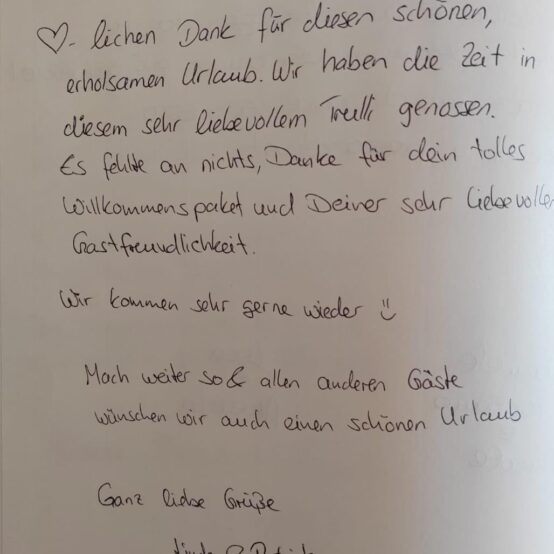 ♡-lichen Dank für diesen schönen,
erholsamen Urlaub. Wir haben die Zeit in
diesem sehr liebevollem Trulli genossen.
Es fehlte an nichts, Danke für dein tolles
Willkommenspaket und Deiner sehr liebevollen
Gastfreundlichkeit.
Wir kommen sehr gerne wieder ☺
Mach weiter so & allen anderen Gäste
wünschen wir auch einen schönen Urlaub
Ganz liebe Grüße